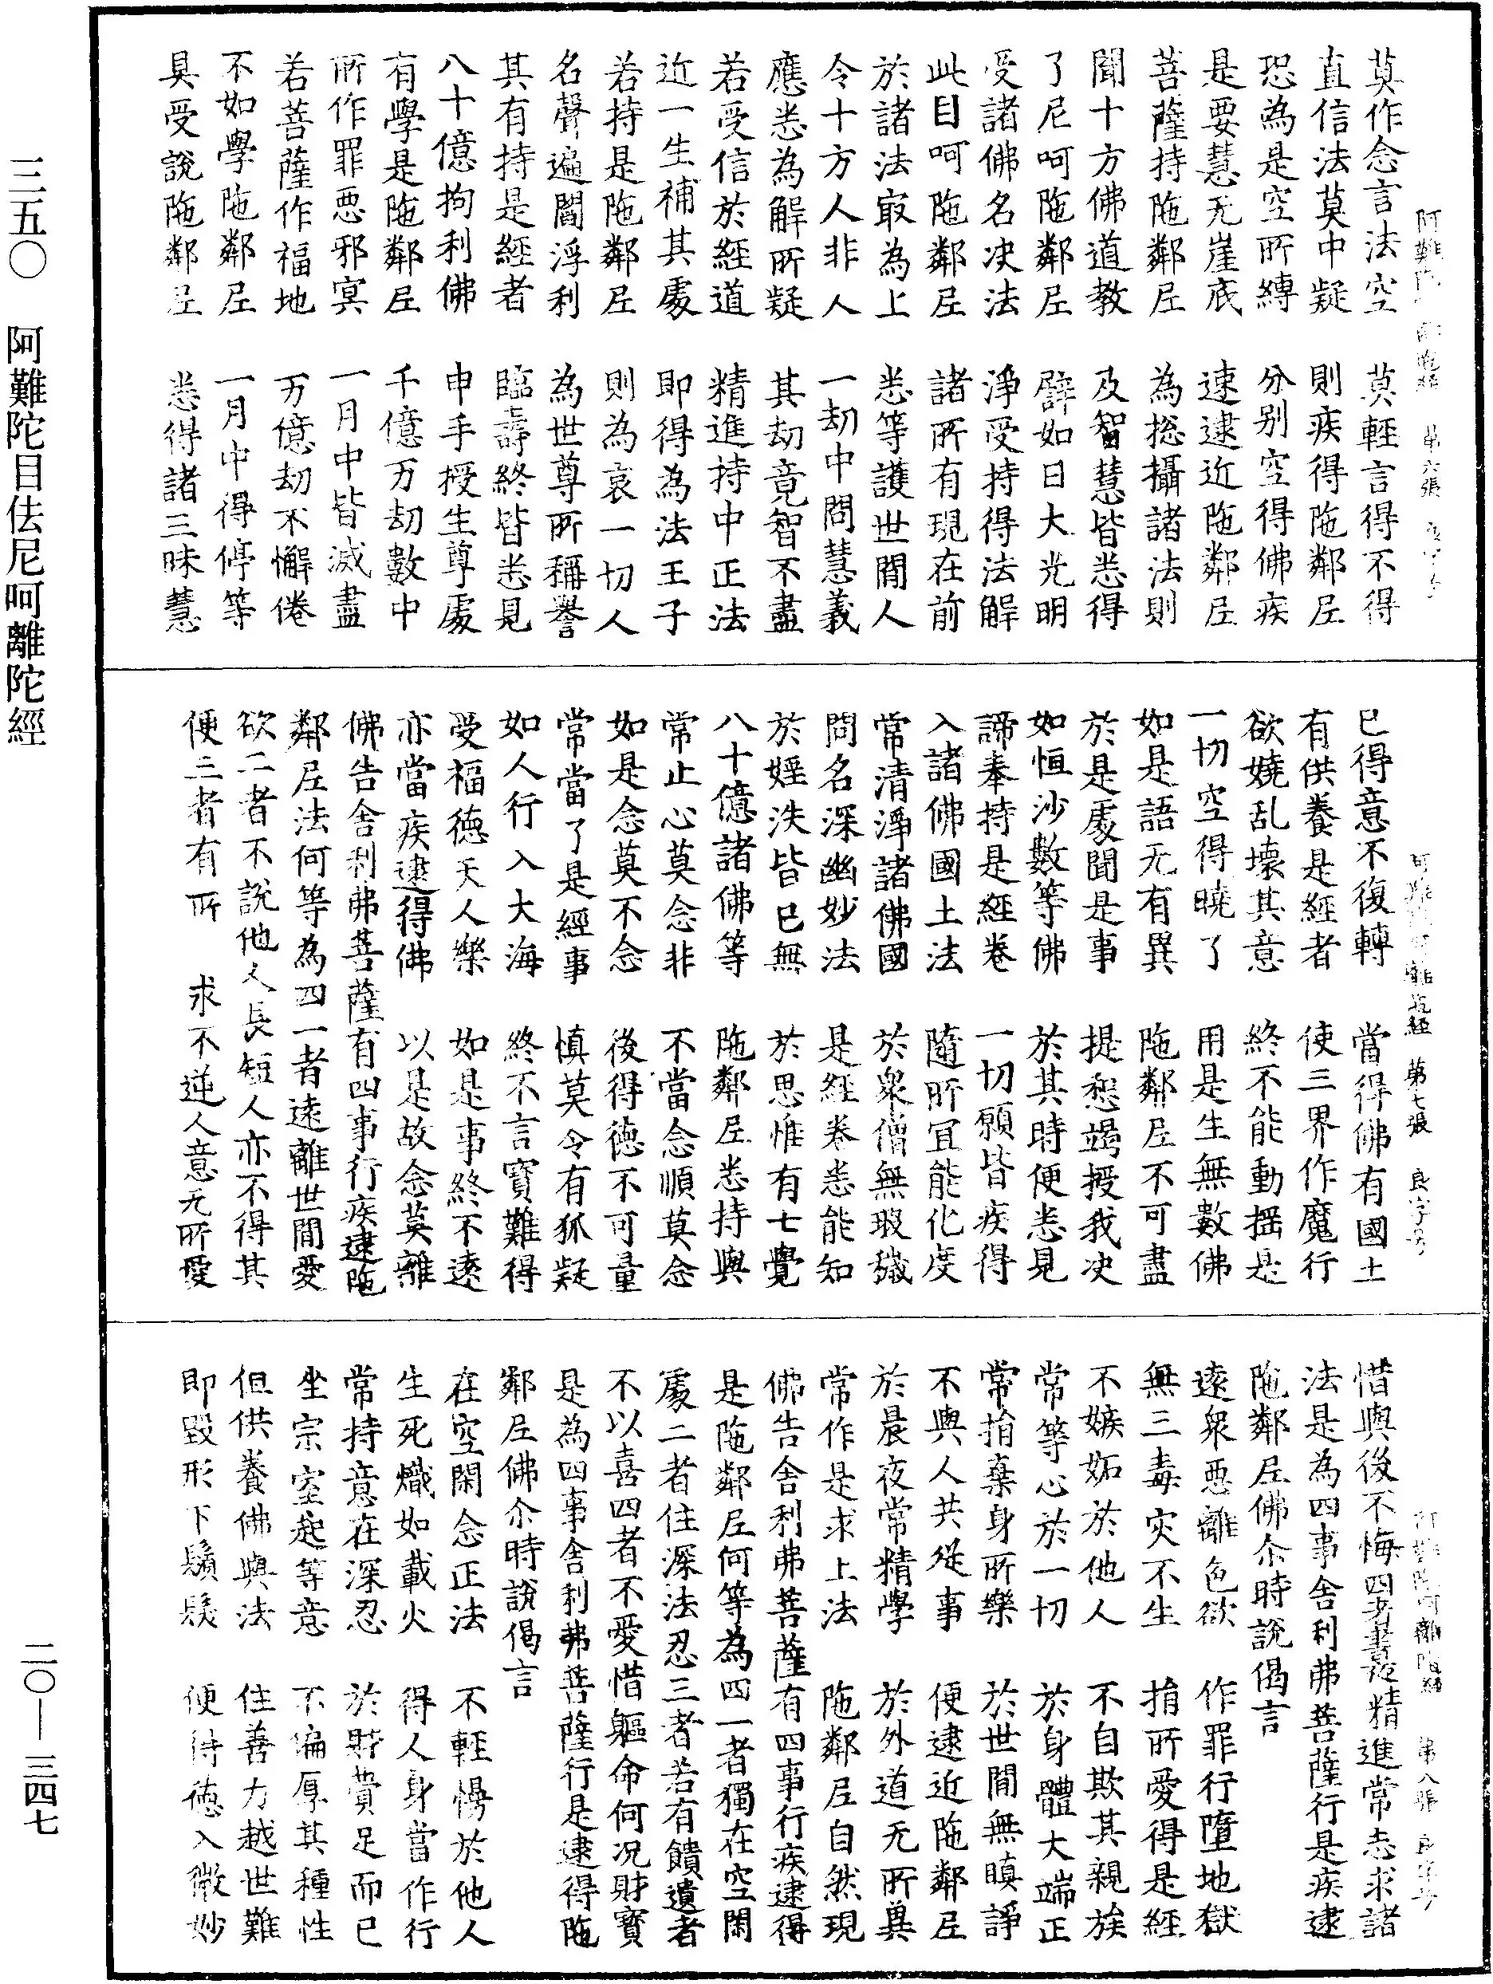 三五〇 阿難陀目佉尼呵離陀經
二〇—三四七
莫作念言法空 莫輕言得不得
直信法莫中疑 則疾得陁鄰尼
恐為是空所縛 分別空得佛疾
是要慧无崖底 速逮近陁鄰尼
菩薩持陁鄰尼 為捴攝諸法則
聞十方佛道教 及智慧皆悉得
了尼呵陁鄰尼 譬如日大光明
受諸佛名决法 淨受持得法解
此目呵陁鄰尼 諸所有現在前
於諸法㝡為上 悉等護世閒人
令十方人非人 一劫中問慧義
應悉為解所疑 其劫竟智不盡
若受信於經道 精進持中正法
近一生補其處 即得為法王子
若持是陁鄰尼 則為哀一切人
名聲遍閻浮利 為世尊所稱譽
其有持是經者 臨壽終皆悉見
八十億拘利佛 申手授生尊處
有學是陁鄰尼 千億万劫數中
所作罪惡邪㝠 一月中皆滅盡
若菩薩作福地 万億劫不懈倦
不如學陁鄰尼 一月中得停等
具受說陁鄰尼 悉得諸三昧慧
阿難陁 第六張
已得意不復轉 當得佛有國土
有供養是經者 使三界作魔行
欲嬈乱壞其意 終不能動揺是
一切空得曉了 用是生無數佛
如是語无有異 陁鄰尼不可盡
於是處聞是事 提惒竭授我决
如恒沙數等佛 於其時便悉見
諦奉持是經卷 一切願皆疾得
入諸佛國土法 隨所冝能化度
常清淨諸佛國 於衆僧無瑕穢
問名深幽妙法 是經卷悉能知
於婬泆皆已無 於思惟有七覺
八十億諸佛等 陁鄰尼悉持與
常止心莫念非 不當念順莫念
如是念莫不念 後得德不可量
常當了是經事 慎莫令有狐疑
如人行入大海 終不言寶難得
受福德天人樂 如是事終不遠
亦當疾逮得佛 以是故念莫離
佛告舍利弗菩薩有四事行疾逮陁
鄰尼法何等為四一者遠離世閒愛
欲二者不說他人長短人亦不得其
便三者有所 求不逆人意无所愛
第七張 良字号
惜與後不悔四者晝夜精進常志求諸
法是為四事舍利弗菩薩行是疾逮
陁鄰尼佛尒時說偈言
遠衆惡離色欲 作罪行墮地獄
無三毒灾不生 捐所愛得是經
不嫉妬於他人 不自欺其親族
常等心於一切 於身體大端正
常捐棄身所樂 於世閒無瞋諍
不與人共従事 便逮近陁鄰尼
於晨夜常精學 於外道无所異
常作是求上法 陁鄰尼自然現
佛告舍利弗菩薩有四事行疾逮得
是陁鄰尼何等為四一者獨在空閑
處二者住深法忍三者若有饋遺者
不以喜四者不愛惜軀命何況財寶
是為四事舍利弗菩薩行是逮得陁
鄰尼佛尒時說偈言
在空閑念正法 不輕慢於他人
生死熾如載火 得人身當作行
常持意在深忍 於財賁足而已
坐宗室起等意 不偏厚其種性
但供養佛與法 住善力越世難
即毀形下鬚髮 便待德入微妙
第八張 良字号